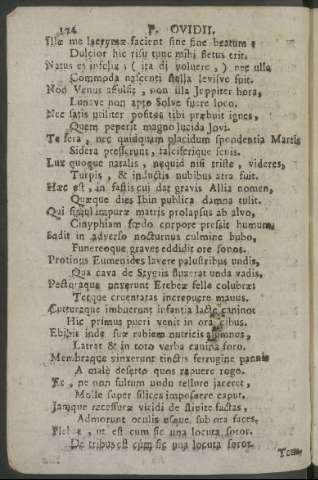 174 P. OVIDII.
Illæ me lacrymæ facient sine fine beatum:
Dulcior hic risu tunc mihi fletus erit.
Natus es infelix: (ita di voluere,) nec ulla
Commoda nascenti stella levisve fuit.
Non Venus affulsit, non illa Juppiter hora,
Lunave non apto Solve fuere loco.
Nec satis utiliter positos tibi præbuit ignes,
Quem peperit magno lucida Jovi.
Te fera, nec quidquam placidum spondentia Martis
Sidera presserunt, falciferique senis.
Lux quoque natalis, nequid nisi triste, videres,
Turpis, & inductis nubibus atra fuit.
Hæc est, in fastis cui dat gravis Allia nomen,
Quæque dies Ibin publica damna tulit.
Qui simul impuræ matris prolapsus ab alvo,
Cinyphiam fœdo corpore pressit humum,
Sedit in adverso nocturnus culmine bubo,
Funereoque graves edidit ore sonos.
Protinus Eumenides lavere palustribus undis,
Qua cava de Stygiis fluxerat unda vadis.
Pectoraque unxerunt Erebeæ felle colubræ:
Terque cruentatas increpuere manus.
Gutturaque imbuerunt infantia lacte canino:
Hic primus pueri venit in ora cibus.
Ebibit inde suæ rabiem nutricis alumnus,
Latrat & in toto verba canina foro.
Membraque vinxerunt tinctis ferrugine pannis
A male deserto quos rapuere rogo.
Et, ne non fultum nudo tellure jaceret,
Molle super silices imposuere caput.
Jamque recessuræ viridi de stipite factas,
Admorunt oculis usque sub ora faces.
Flebat, ut est cum sic una locuta soror.
De tribus est cum sic una locuta soror.